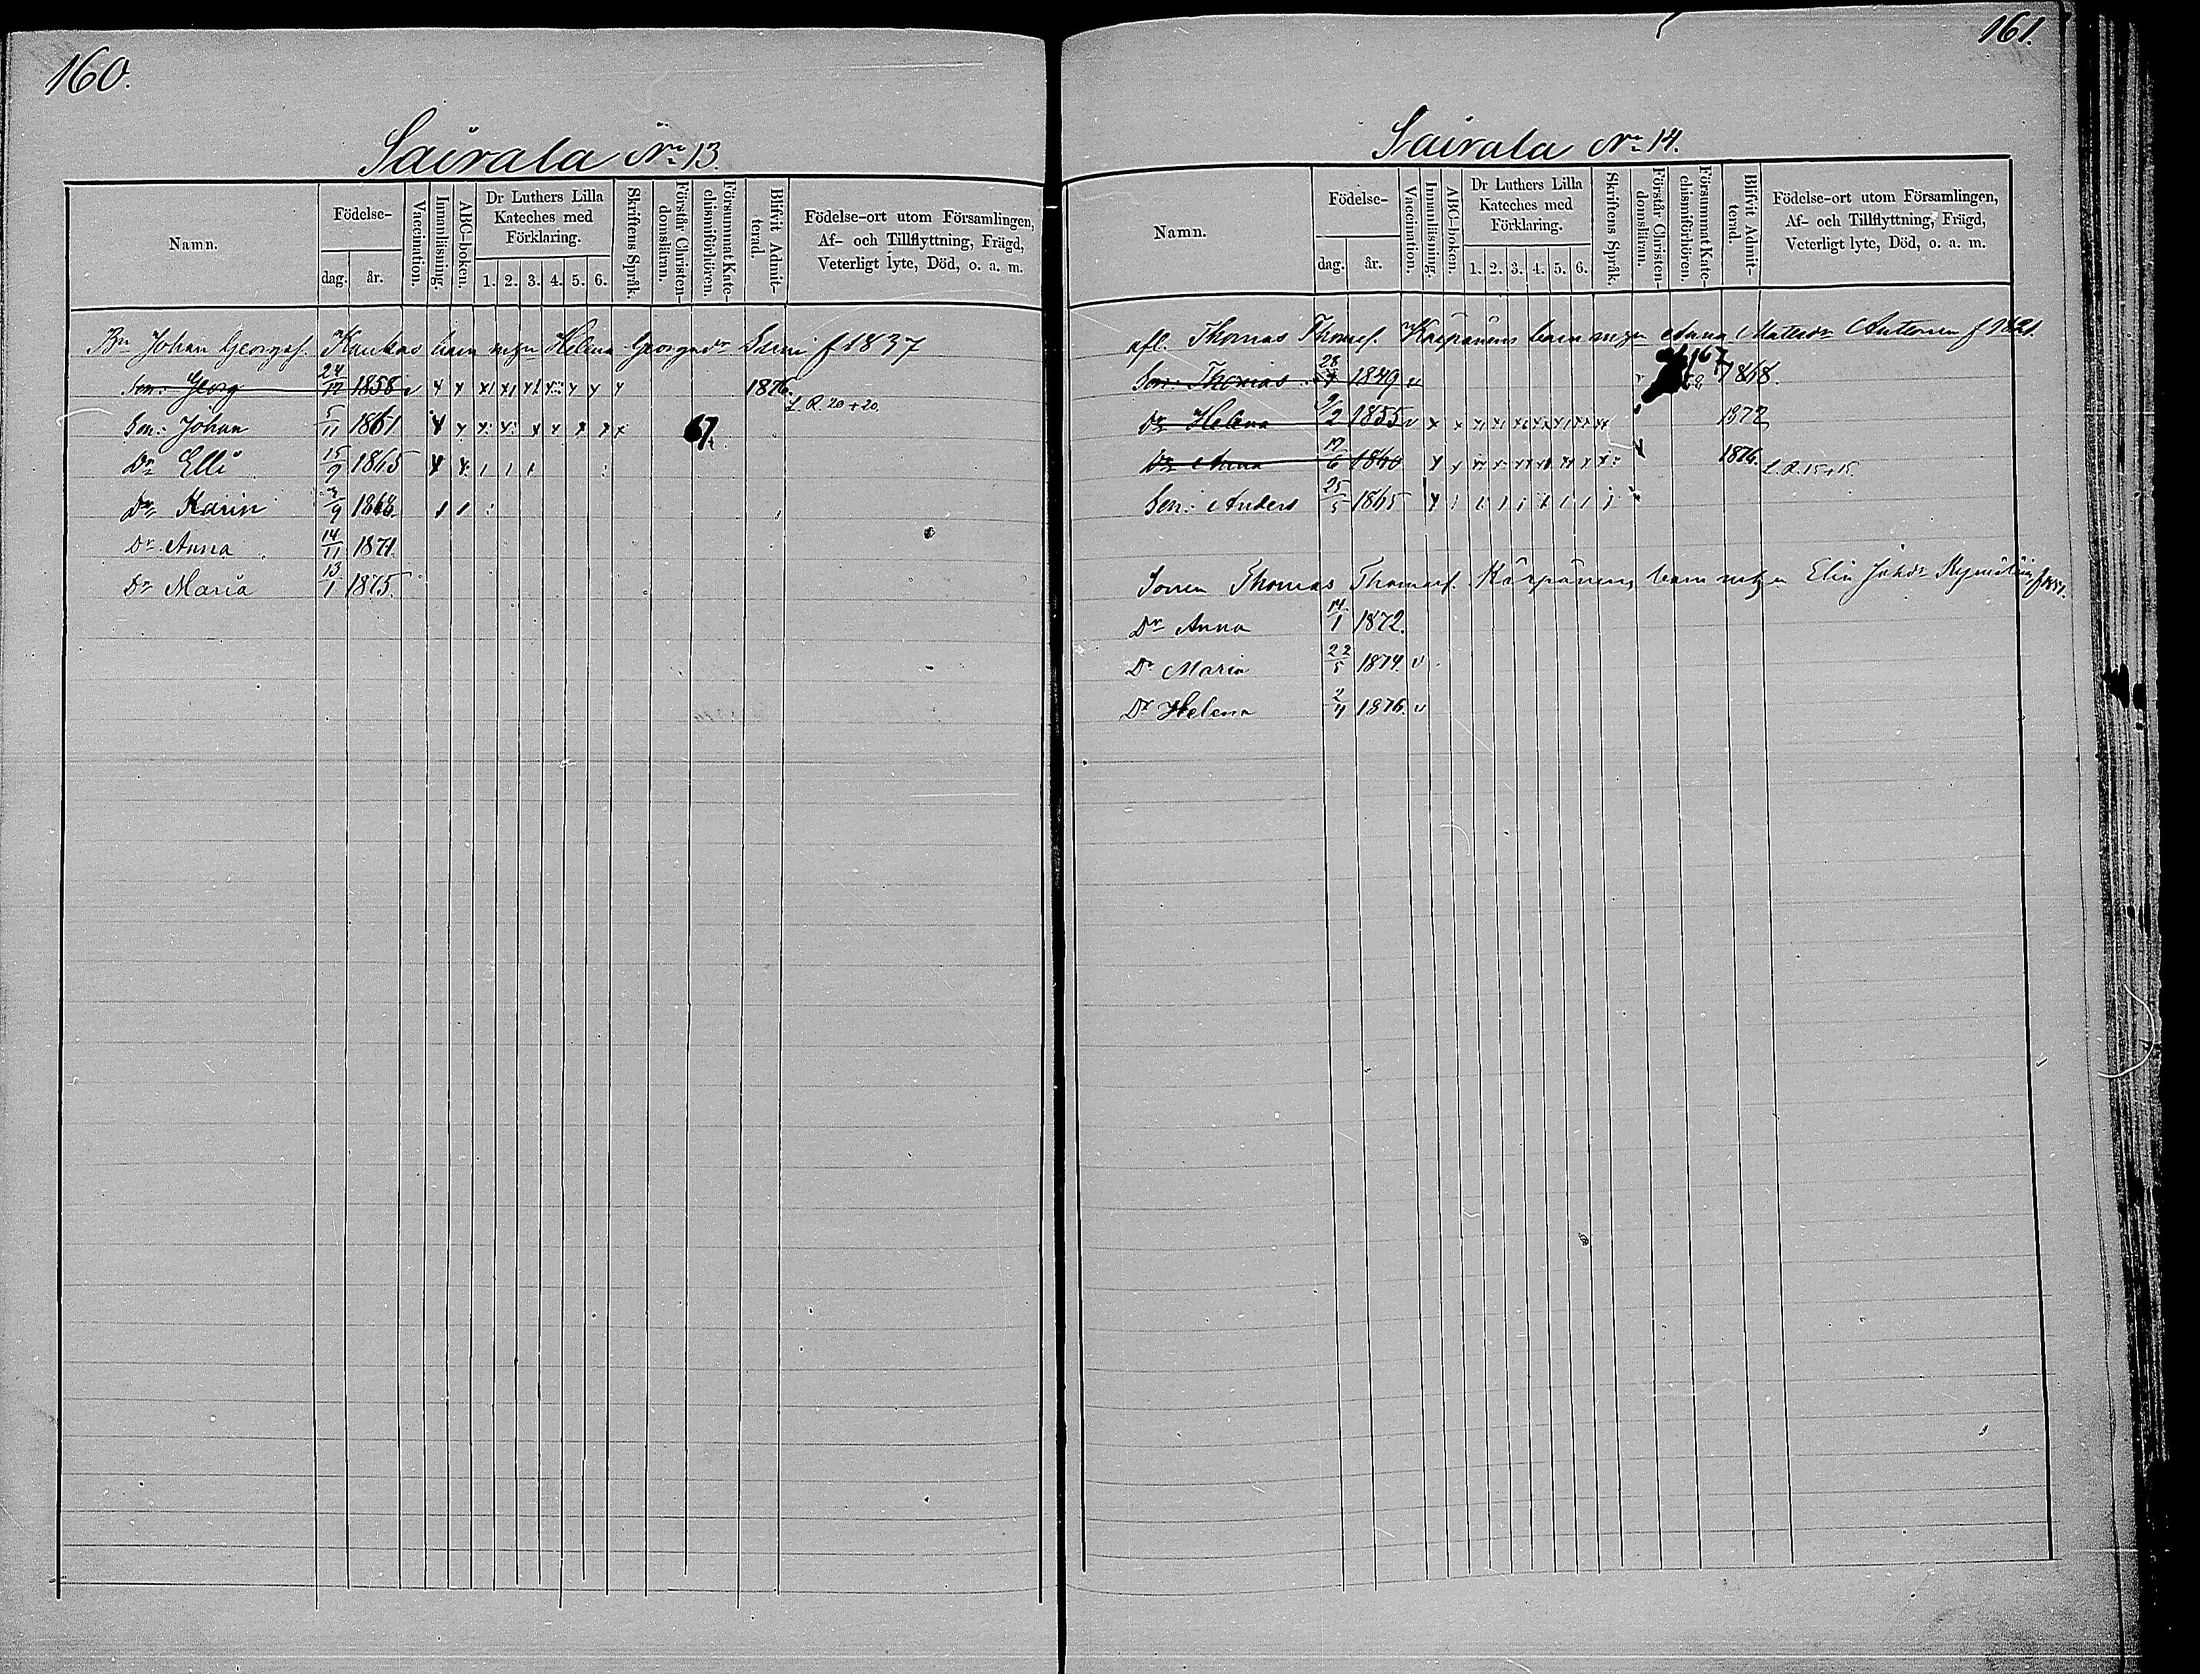 160.
Sairala No 13.
Namn.
Födelse-
dag. år.
Vaccination.
Innanläsning.
ABC-boken.
Dr Luthers Lilla Kateches med Förklaring.
1. 2. 3. 4. 5. 6.
Skriftens Språk.
Förstår Christen-domsläran.
Försummat Kate-chismiförhören.
Blifvit Admit-terad.
Födelse-ort utom Församlingen,
Af- och Tillflyttning, Frägd,
Veterligt lyte, Död, o. a. m.
Johan Georgsf. Kaukas barn m Helena Georgsdr Suni f 1837
Son: Georg 24/12 1858 v x x x x x x x x x 1876. L. R. 20 + 20.
Son: Johan 5/11 1861 x x x x x x x x x 67
Dr Elli 15/9 1865 x x
Dr Karin 9 1868.
Dr Anna 14/11 1871.
Dr Maria 13/1 1875.
161.
Sairala No 14.
Namn.
Födelse-
dag. år.
Vaccination.
Innanläsning.
ABC-boken.
Dr Luthers Lilla Kateches med Förklaring.
1. 2. 3. 4. 5. 6.
Skriftens Språk.
Förstår Christen-domsläran.
Försummat Kate-chismiförhören.
Blifvit Admit-terad.
Födelse-ort utom Församlingen,
Af- och Tillflyttning, Frägd,
Veterligt lyte, Död, o. a. m.
afl. Thomas Thomasf. Kärpänens barn m Anna Matsdr Antonen f 1821.
Son: Thomas 28 1849 v 67 1868.
Dr Helena 9/2 1855 v x x 1872
Dr Anna 17/6 1860 x x 1876. L. R. 15 + 15.
Son: Anders 25/5 1865 x
Sonen Thomas Thomasf. Kärpänens barn m Elin Johdr
Dr Anna 14/1 1872.
Dr Maria 22/5 1874. v
Dr Helena 2/4 1876. v